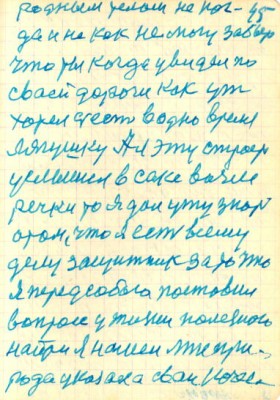 родным телом не ког- 45
да и не как не смогу забыть
что ты когда увидел по
своей дороги как уж
хорел съесть в одно время
лягушку А я эту строар
услышел в саке возле
речки то я дал ужу знать
о том, что я есть всему
делу защитник за то что
я перед собою поставил
вопрос у жизни полезного
найти я нашел мне при-
рода указала свои